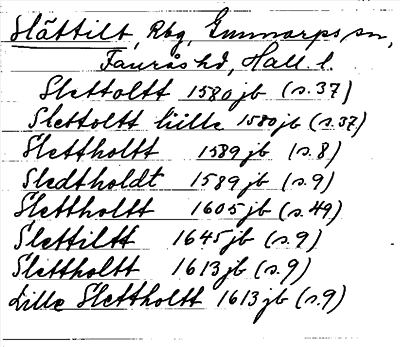 Slättilt, Rbg, Emmarps sn,
Faurås hd, Hall. l.
Slettoltt 1580 jb (s. 37)
Slettoltt liille 1580 jb (s. 37)
Slettholtt 1589 jb (s. 8)
Sledtholdt 1589 jb (s. 9)
Slettholtt 1605 jb (s. 49)
Slettiltt 1645 jb (s. 9)
Slittholtt 1613 jb (s. 9)
Lille Slettholtt 1613 jb (s. 9)